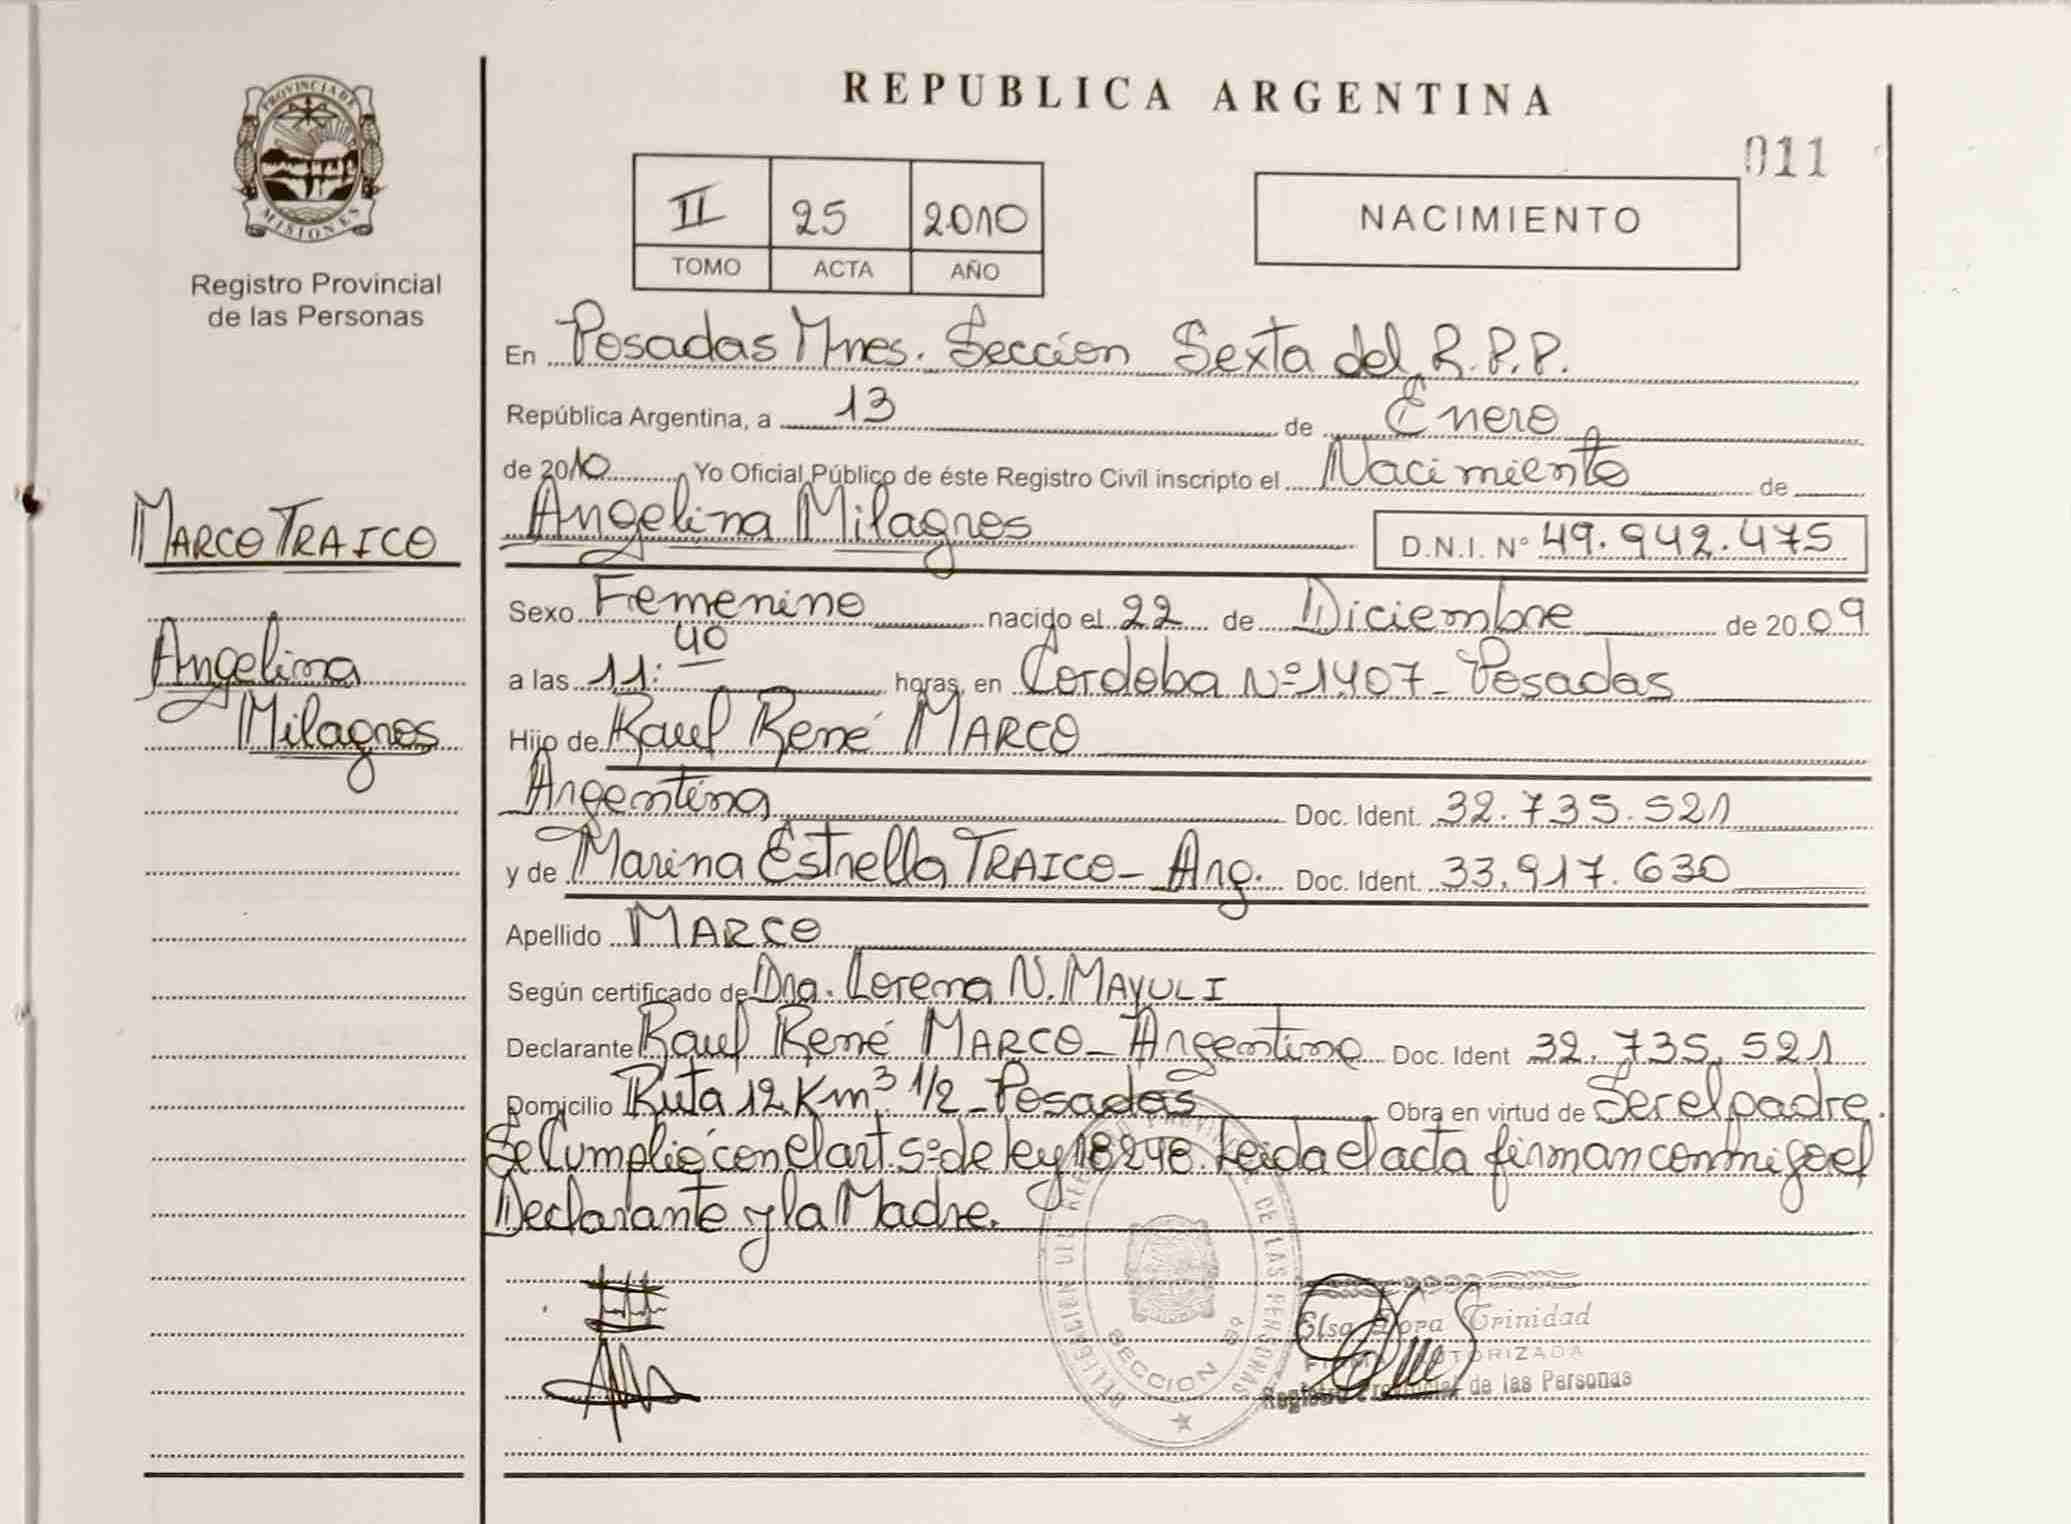 PROVINCIA DE
MISIONES
Registro Provincial
de las Personas
MARCO TRAICO
Angelina
Milagros
REPUBLICA ARGENTINA
011
II 25 2010
TOMO ACTA AÑO
NACIMIENTO
En Posadas Mnes. Sección Sexta del R.P.P.
República Argentina, a 13 de Enero
de 2010 Yo Oficial Público de éste Registro Civil inscripto el Nacimiento de
Angelina Milagros D.N.I. Nº 49.942.475
Sexo Femenino nacido el 22 de Diciembre de 2009
a las 11:40 horas, en Cordoba Nº 1407 - Posadas
Hijo de Raul René MARCO
Argentina Doc. Ident. 32.735.521
y de Marina Estrella TRAICO - Arg. Doc. Ident. 33.917.630
Apellido MARCO
Según certificado de Dra. Lorena N. MAYULI
Declarante Raul René MARCO - Argentino Doc. Ident 32.735.521
Domicilio Ruta 12 Km 3 1/2 - Posadas Obra en virtud de Ser el padre.
Se Cumplió con el art. 5º de ley 18248. Leida el acta firman conmigo el
Declarante y la Madre.
DELEGACION DEL REGISTRO PROVINCIAL DE LAS PERSONAS
SECCION 6º
Elsa Dora Trinidad
FIRMA AUTORIZADA
Registro Provincial de las Personas